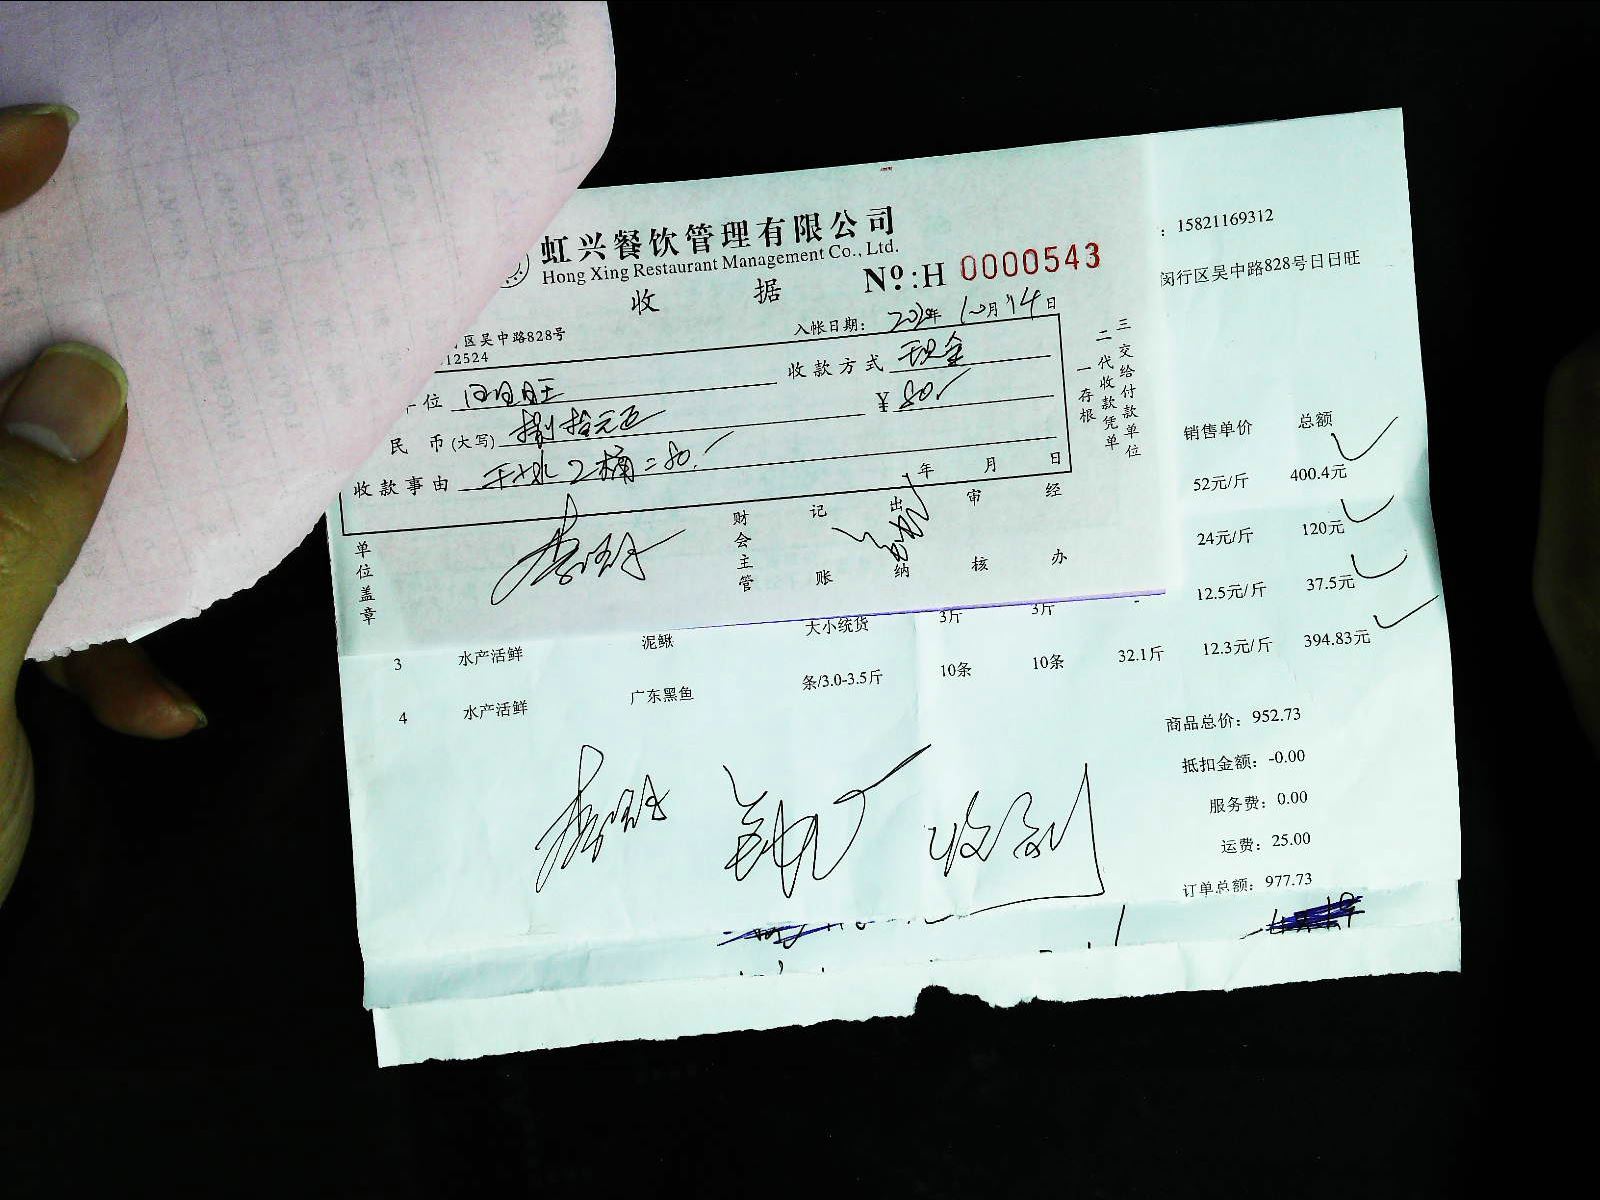 虹兴餐饮管理有限公司
Hong Xing Restaurant Management Co., Ltd.
收 据
Nº:H 0000543
：15821169312
闵行区吴中路828号日日旺
区吴中路828号
12524
入帐日期： 年 10月14日
单位 日日旺 收款方式 现金
民 币(大写) 捌拾元正 ¥ 80.
收款事由 2桶=80.
年 月 日
一存根
二代收款凭单
三交给付款单位
单位盖章 财会主管 记账 出纳 审核 经办
销售单价 总额
52元/斤 400.4元
24元/斤 120元
12.5元/斤 37.5元
12.3元/斤 394.83元
3 水产活鲜 泥鳅 大小统货 3斤 3斤 -
4 水产活鲜 广东黑鱼 条/3.0-3.5斤 10条 10条 32.1斤
商品总价：952.73
抵扣金额：-0.00
服务费：0.00
运费：25.00
订单总额：977.73
收到